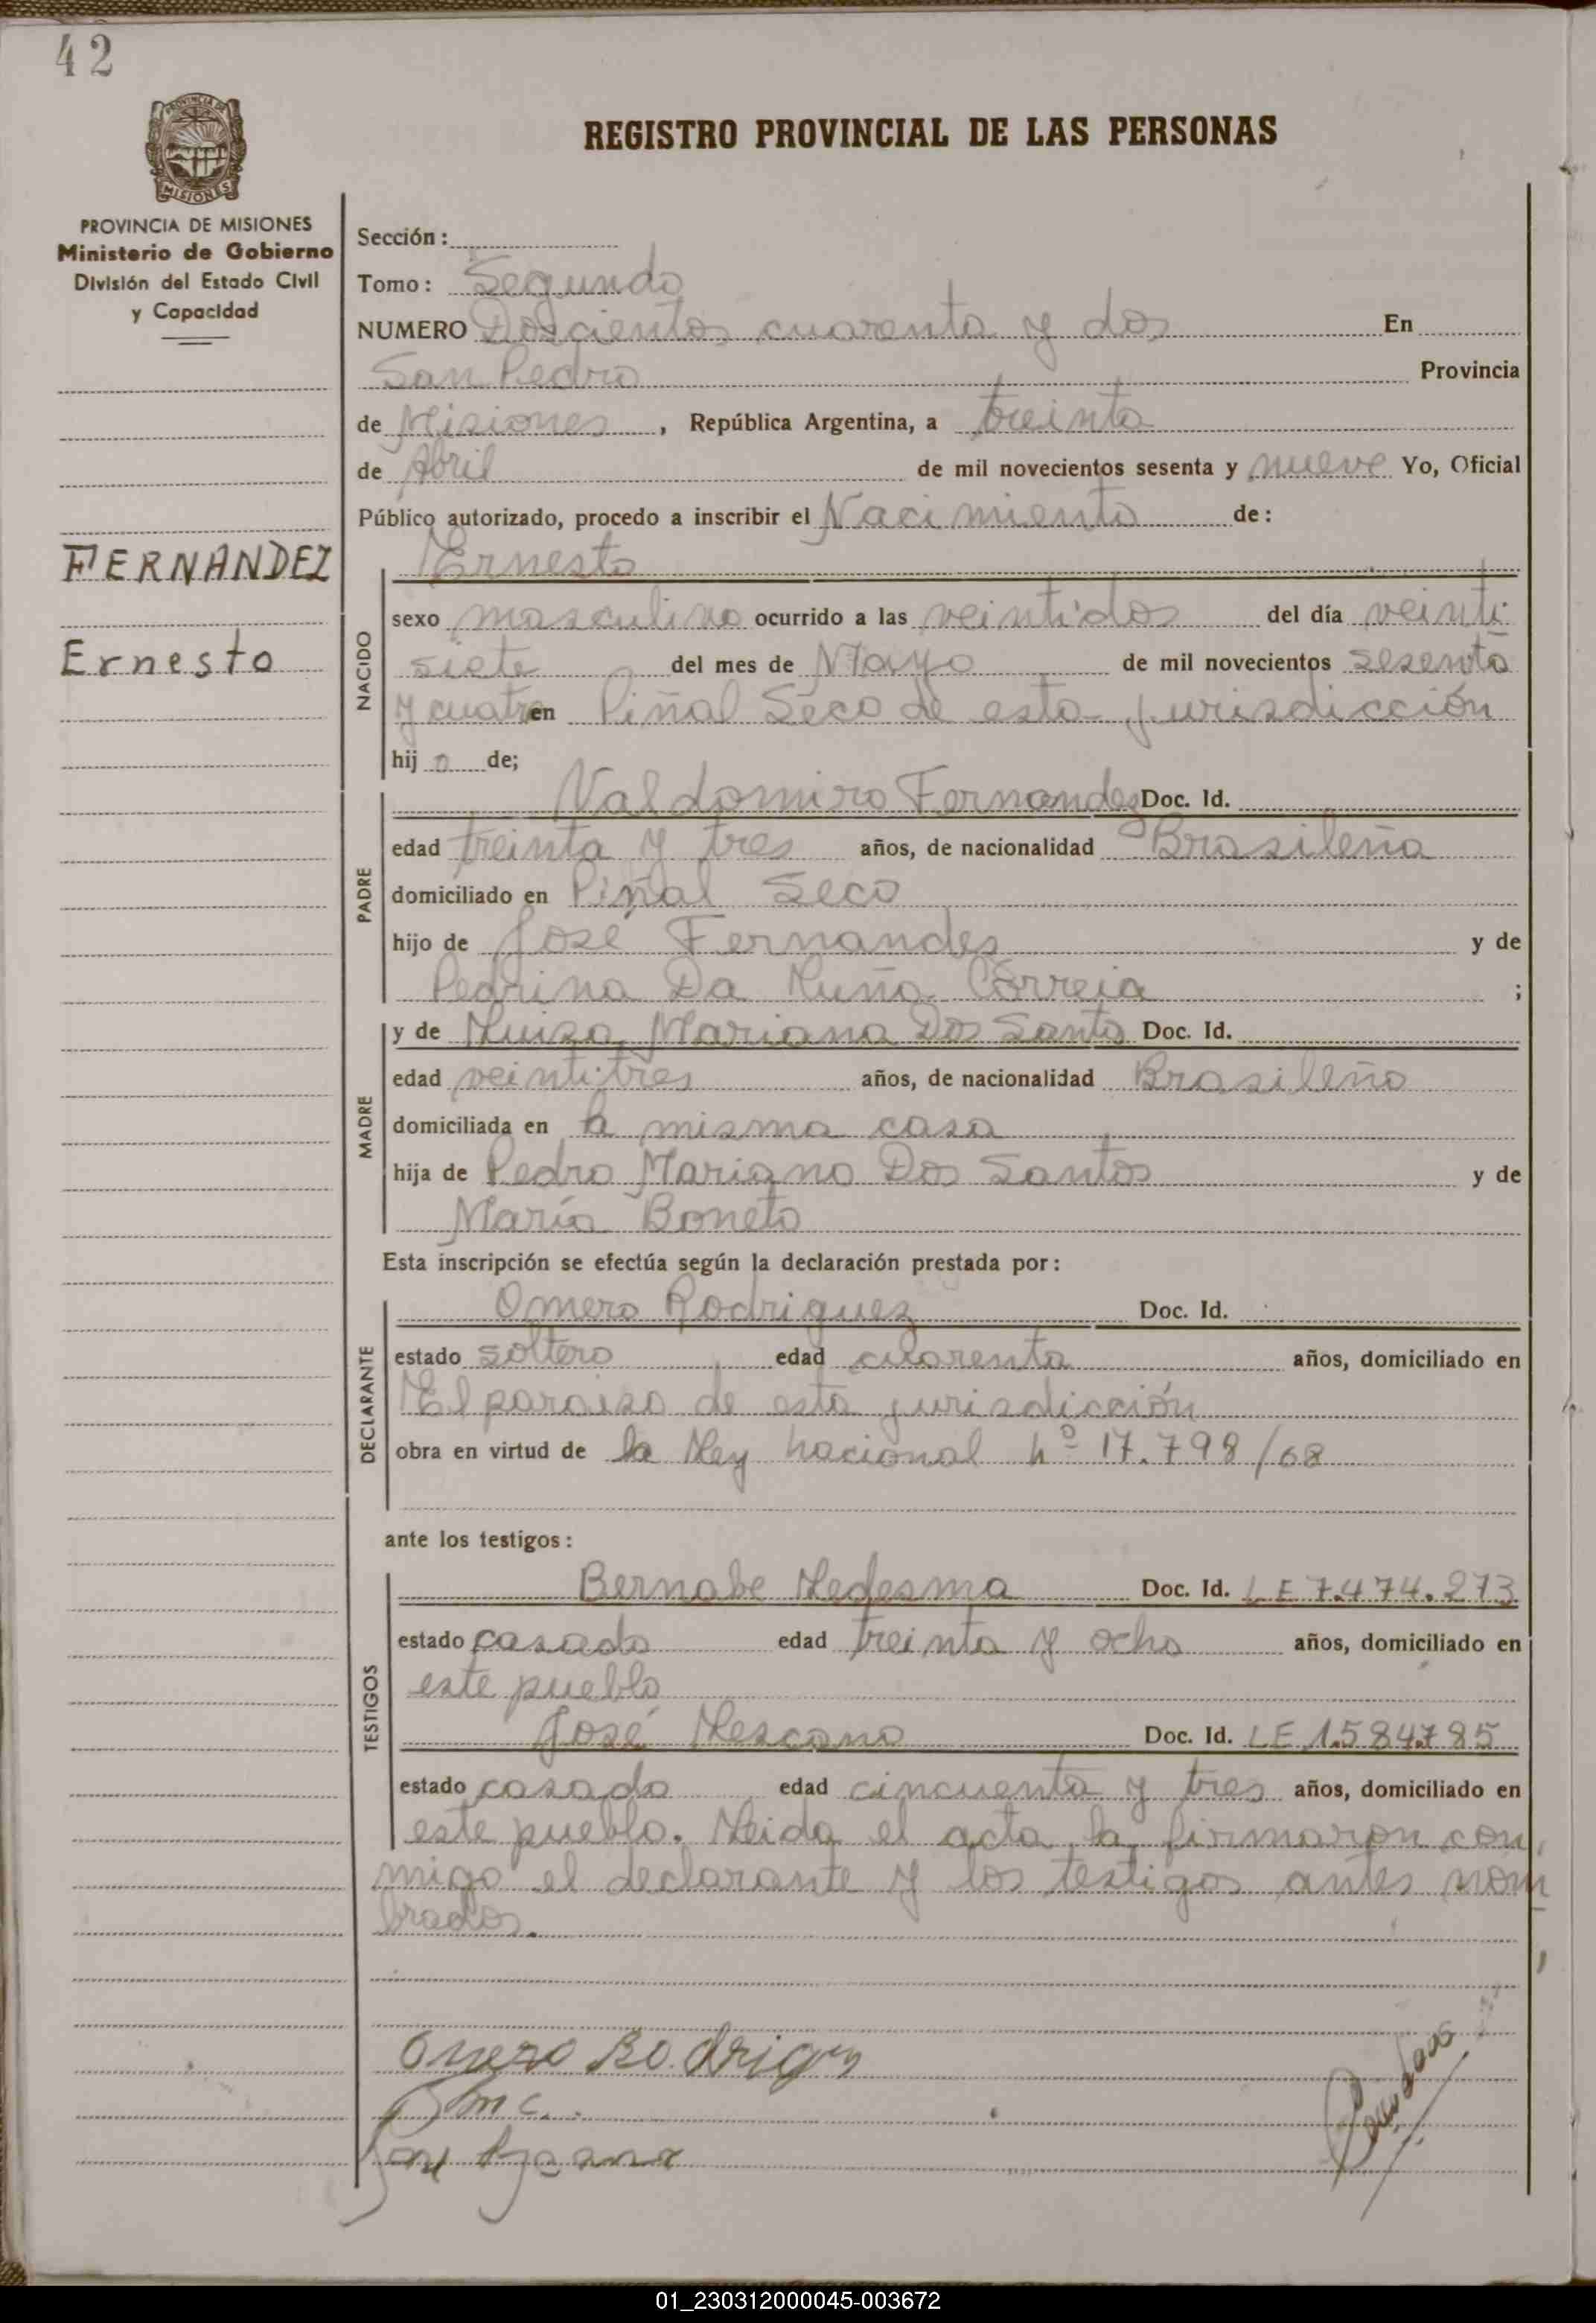 42
PROVINCIA DE
MISIONES
REGISTRO PROVINCIAL DE LAS PERSONAS
PROVINCIA DE MISIONES
Ministerio de Gobierno
División del Estado Civil
y Capacidad
FERNANDEZ
Ernesto
Sección:
Tomo: Segundo
NUMERO Doscientos cuarenta y dos En
San Pedro Provincia
de Misiones, República Argentina, a treinta
de Abril de mil novecientos sesenta y nueve Yo, Oficial
Público autorizado, procedo a inscribir el Nacimiento de:
NACIDO
Ernesto
sexo masculino ocurrido a las veintidos del día veinti
siete del mes de Mayo de mil novecientos sesenta
y cuatro en Piñal Seco de esta jurisdicción
hijo de;
PADRE
Valdomiro Fernandez Doc. Id.
edad treinta y tres años, de nacionalidad Brasileña
domiciliado en Piñal Seco
hijo de José Fernandes y de
Pedrina Da Luña Correia ;
MADRE
y de Luisa Mariana Dos Santos Doc. Id.
edad veintitres años, de nacionalidad Brasileña
domiciliada en la misma casa
hija de Pedro Mariano Dos Santos y de
María Boneto
Esta inscripción se efectúa según la declaración prestada por:
DECLARANTE
Omero Rodriguez Doc. Id.
estado soltero edad cuarenta años, domiciliado en
El paraiso de esta jurisdicción
obra en virtud de la Ley Nacional nº 17.798/68
ante los testigos:
TESTIGOS
Bernabe Ledesma Doc. Id. LE 7.474.273
estado casado edad treinta y ocho años, domiciliado en
este pueblo
José Lescano Doc. Id. LE 1.584.785
estado casado edad cincuenta y tres años, domiciliado en
este pueblo. Leida el acta la firmaron con
migo el declarante y los testigos antes nom
brados.
Omero Rodrigez
01_230312000045-003672